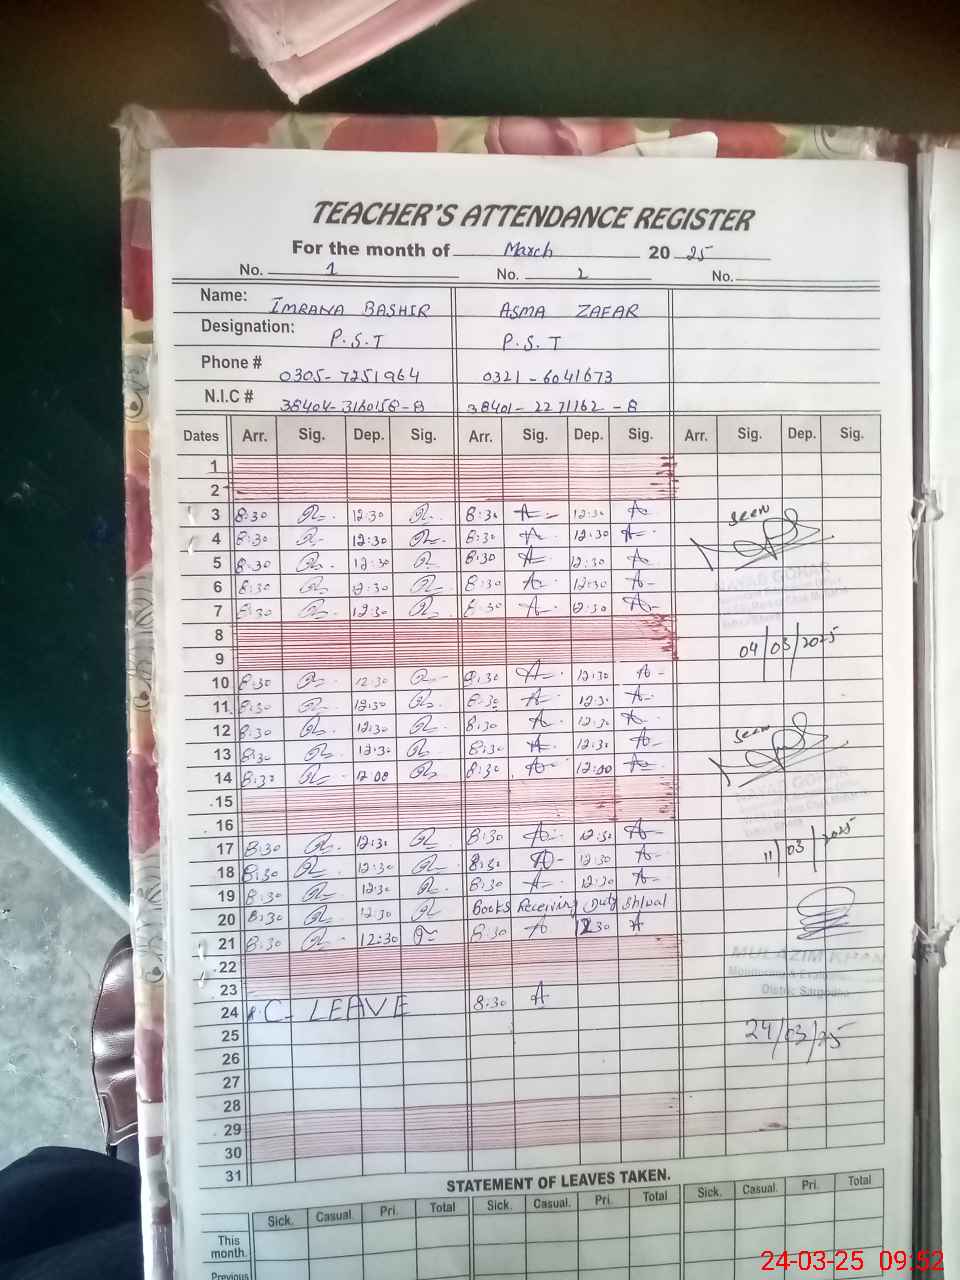 TEACHER'S ATTENDANCE REGISTER
For the month of March 2025
No. 1 No. 2 No.
Name: IMRANA BASHIR ASMA ZAFAR
Designation: P.S.T P.S.T
Phone # 0305-7251964 0321-6041673
N.I.C # 38404-3160158-8 38401-2271162-8
Dates Arr. Sig. Dep. Sig. Arr. Sig. Dep. Sig. Arr. Sig. Dep. Sig.
1
2
3 8:30 12:30 8:30 12:30 seen
4 8:30 12:30 8:30 12:30
5 8:30 12:30 8:30 12:30
6 8:30 12:30 8:30 12:30 NAYAB GOHAR
7 8:30 12:30 8:30 12:30
8
9 04/03/2025
10 8:30 12:30 8:30 12:30
11 8:30 12:30 8:30 12:30
12 8:30 12:30 8:30 12:30
13 8:30 12:30 8:30 12:30 seen
14 8:30 12:00 8:30 12:00
15 NAYAB GOHAR
16
17 8:30 12:30 8:30 12:30
18 8:30 12:30 8:30 12:30 11/03/2025
19 8:30 12:30 8:30 12:30
20 8:30 12:30 Books Receiving Duty
21 8:30 12:30 8:30 12:30
22 MULAZIM KHAN
23 Monitoring &
24 C- LEAVE 8:30
25 24/03/25
26
27
28
29
30
31
STATEMENT OF LEAVES TAKEN.
Sick. Casual. Pri. Total Sick. Casual. Pri. Total Sick. Casual. Pri. Total
This month.
Previous
24-03-25 09:52